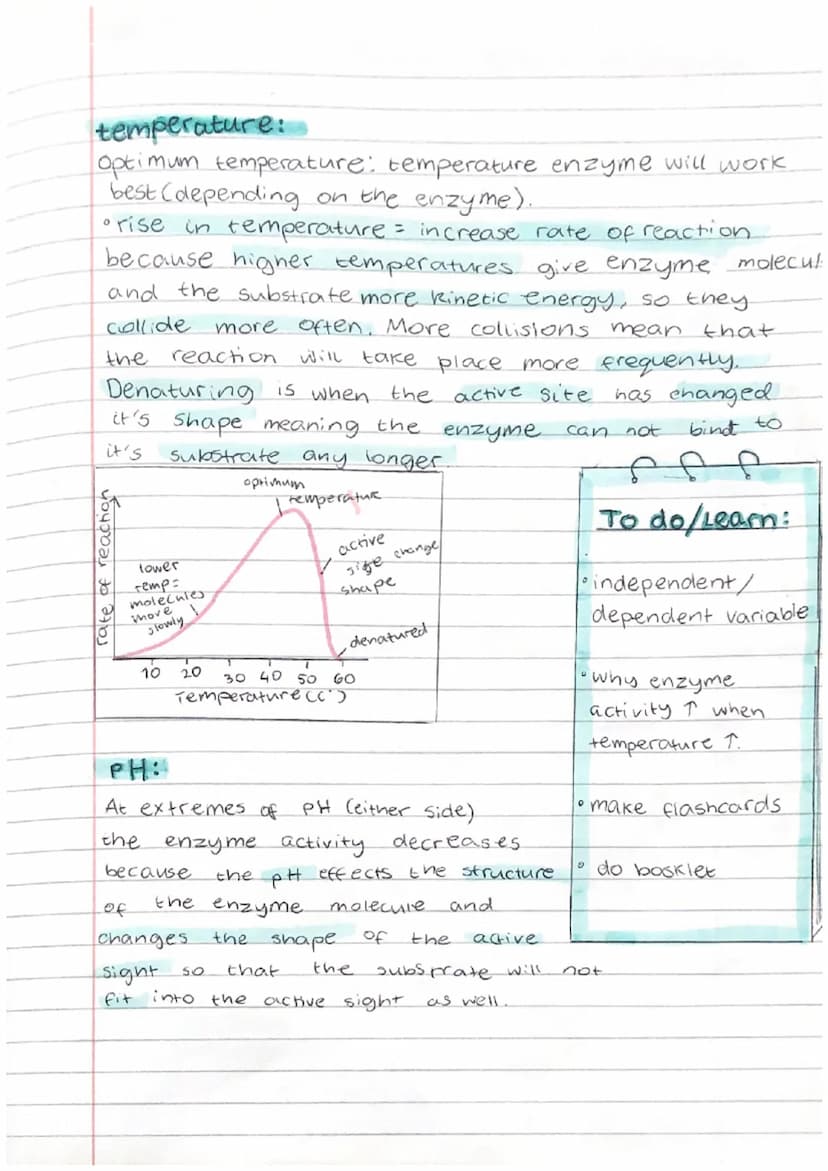 temperature:
optimum temperature: temperature enzyme will work
best (depending on the enzyme).
• rise in temperature = increase rate of reaction
because higher temperatures give enzyme molecul
and the substrate more kinetic energy, so they
collide more often. More collisions mean that
the reaction will take place more frequently.
Denaturing is when the active site has changed
it's shape meaning the enzyme can not bind to
it's substrate any longer.
optimum
temperature
rate of reaction
active
site change
shape
lower
temp=
molecules
move
slowly
denatured
10 20 30 40 50 60
Temperature (C°)
To do/Learn:
• independent/
dependent variable
• why enzyme
activity ↑ when
temperature ↑.
• make flashcards
• do booklet
PH:
At extremes of pH (either side)
the enzyme activity decreases
because the pH effects the structure
of the enzyme molecule and
changes the shape of the active
sight so that the substrate will not
fit into the active sight as well.